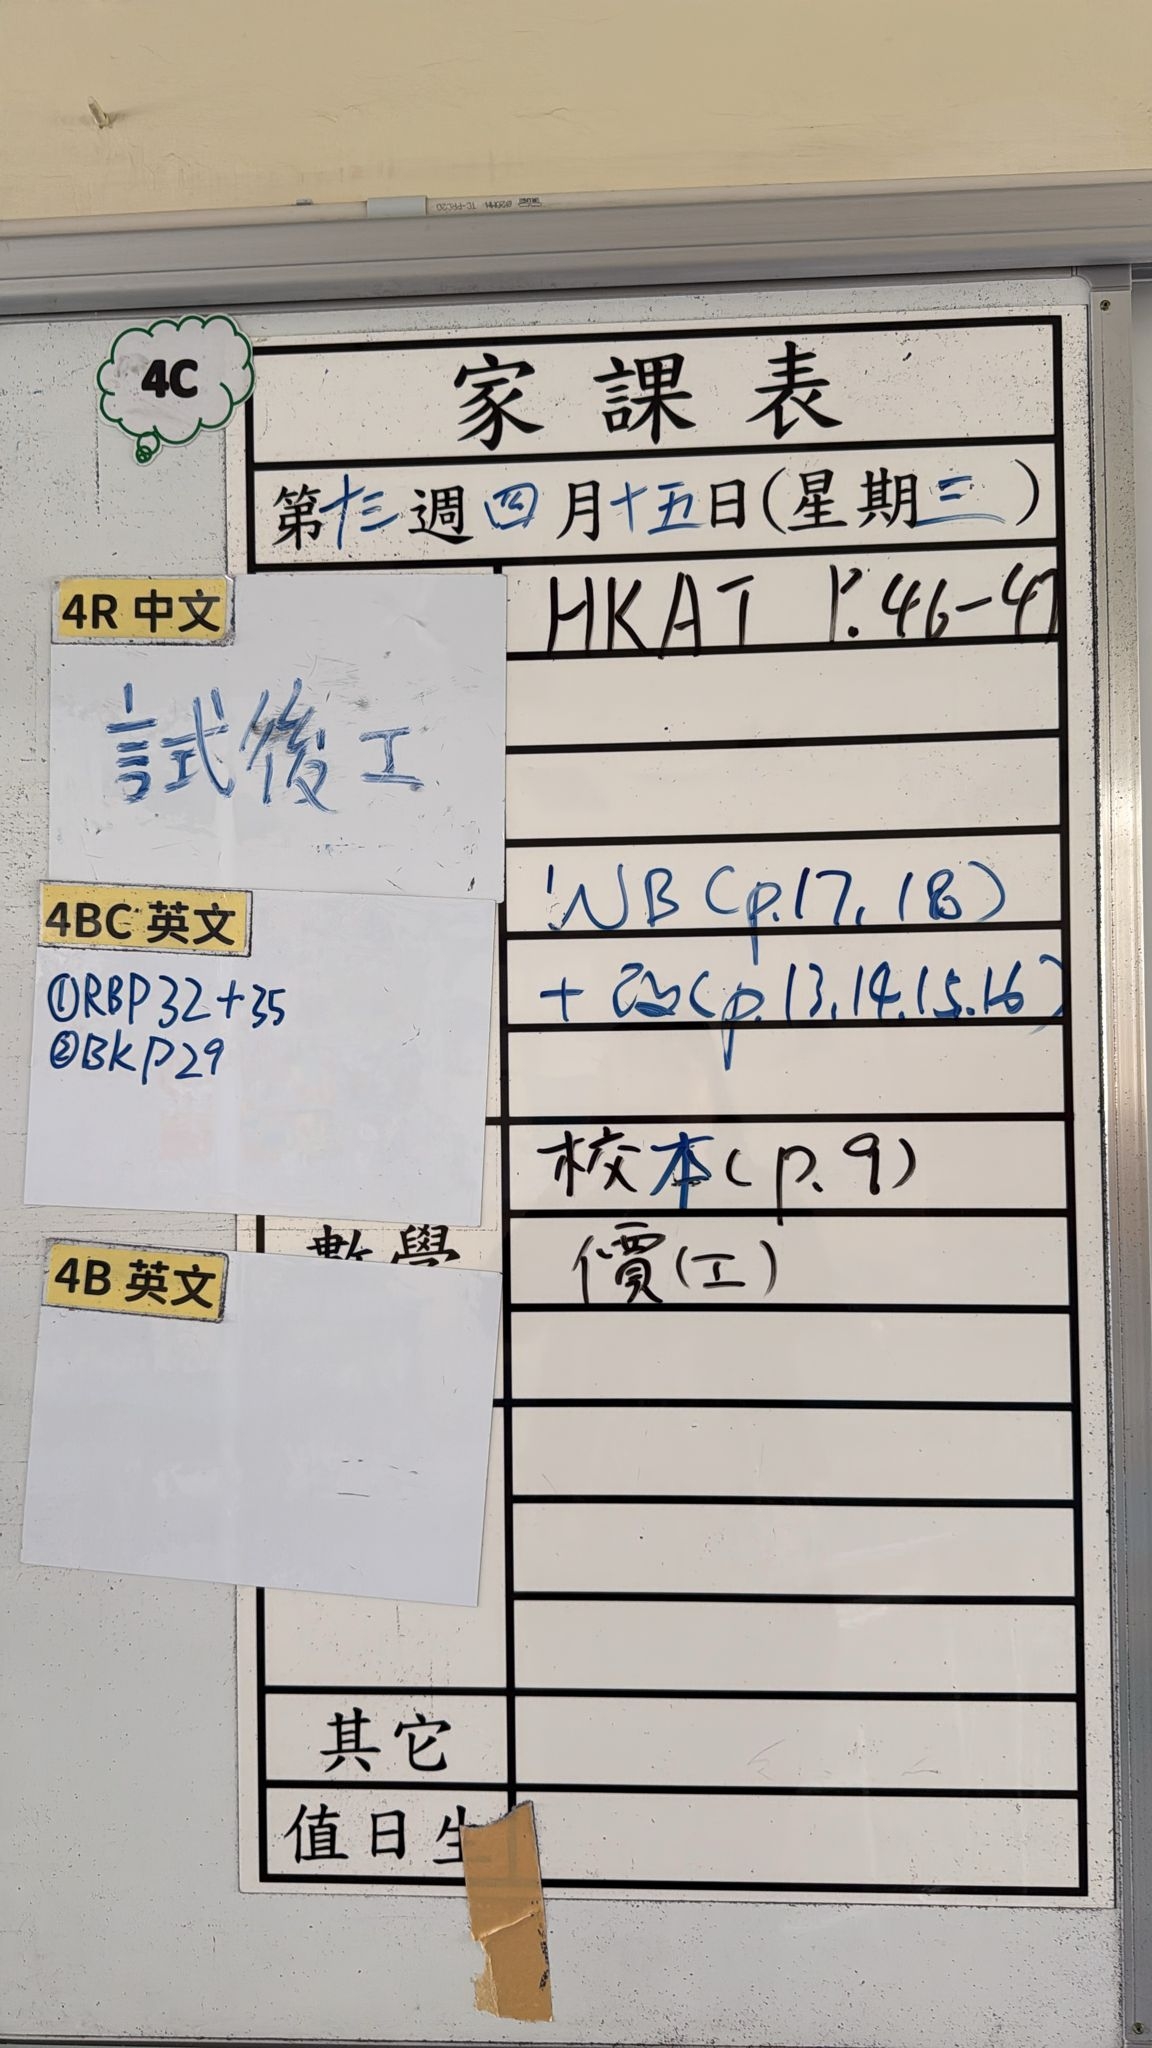 4C
家課表
第十三週四月十五日(星期三)
4R 中文
試後工
HKAT P.46-47
4BC 英文
①RBP32+35
②BKP29
WB(p.17, 18)
+ 改(p.13.14.15.16)
校本(p.9)
數學
價(工)
4B 英文
其它
值日生